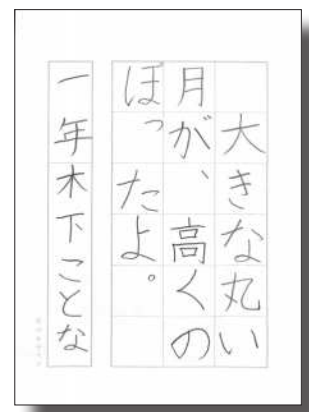 大きな丸い
月が、高くの
ぼったよ。
一年木下ことな